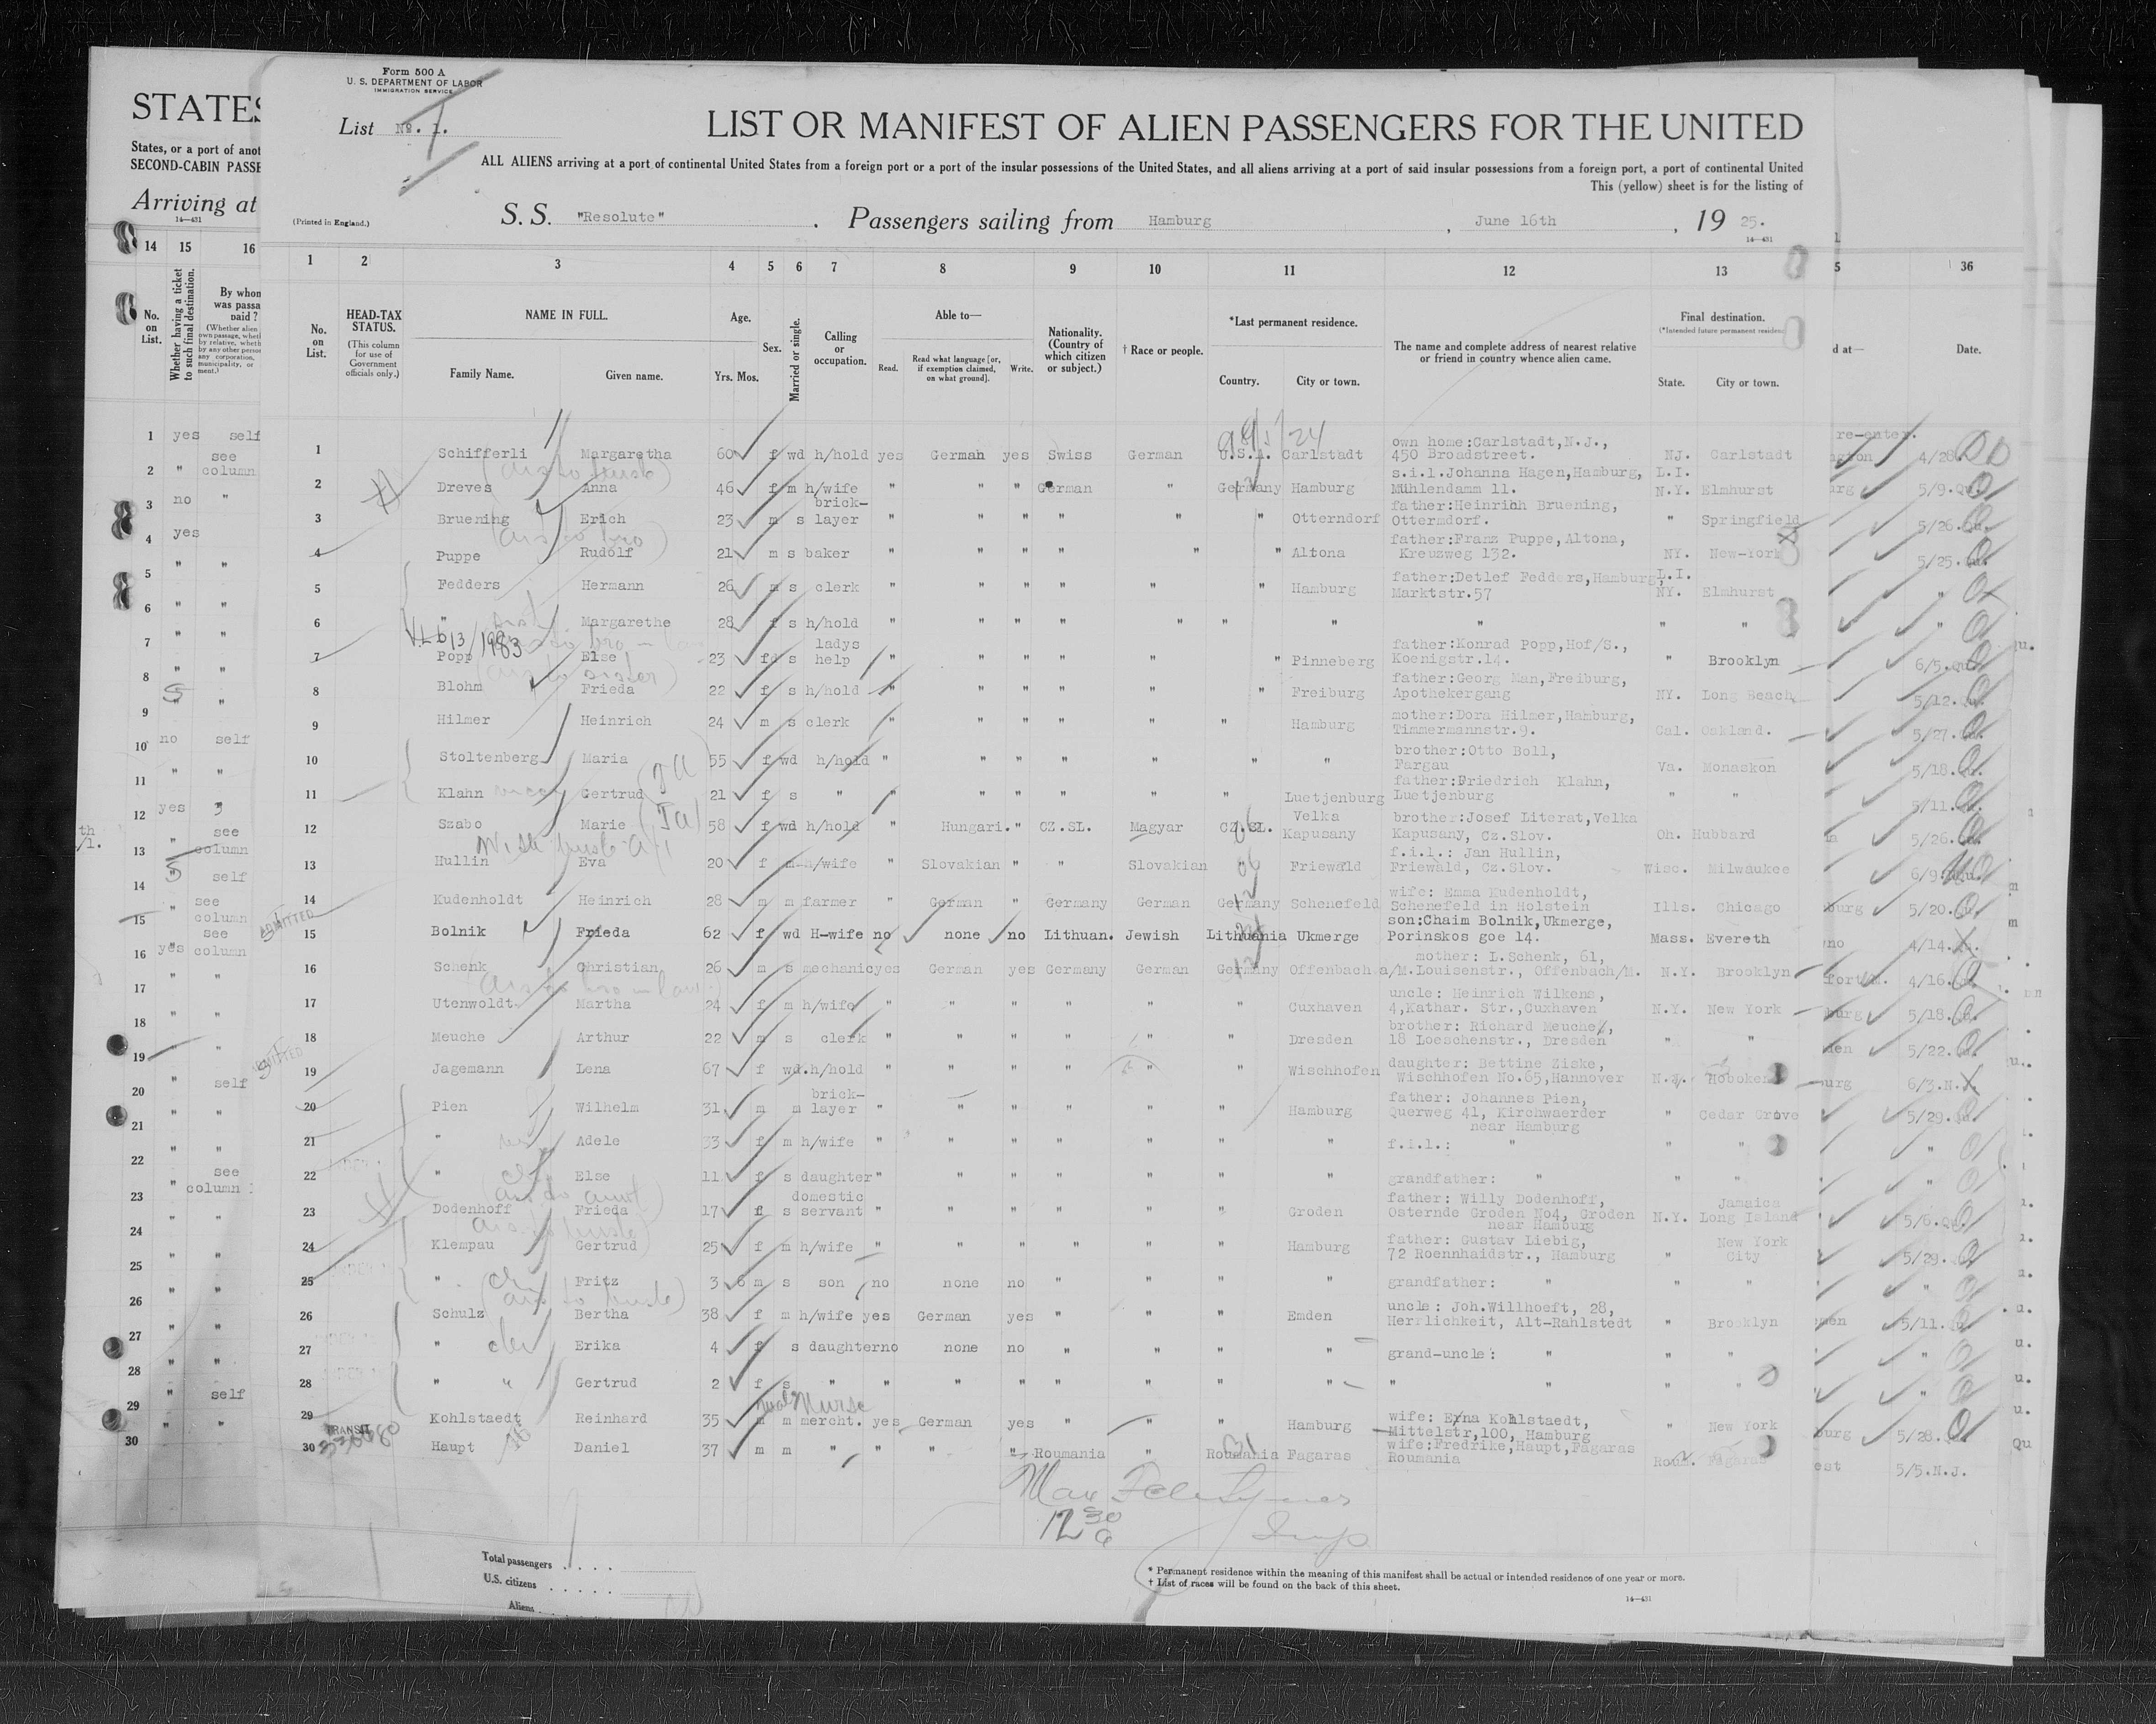 Form 500 A
U. S. DEPARTMENT OF LABOR
IMMIGRATION SERVICE
List No. 1.
LIST OR MANIFEST OF ALIEN PASSENGERS FOR THE UNITED
ALL ALIENS arriving at a port of continental United States from a foreign port or a port of the insular possessions of the United States, and all aliens arriving at a port of said insular possessions from a foreign port, a port of continental United
This (yellow) sheet is for the listing of
(Printed in England.)
S. S. "Resolute" . Passengers sailing from Hamburg , June 16th , 19 25.
14—431
STATES
States, or a port of anot
SECOND-CABIN PASSE
Arriving at
14—431
14 15 16
No. on List.
Whether having a ticket to such final destination.
By whom was passa paid ?
1 2 3 4 5 6 7 8 9 10 11 12 13
No. on List.
HEAD-TAX STATUS.
(This column for use of Government officials only.)
NAME IN FULL.
Family Name. Given name.
Age.
Yrs. Mos.
Sex.
Married or single.
Calling or occupation.
Able to—
Read. Read what language [or, if exemption claimed, on what ground]. Write.
Nationality. (Country of which citizen or subject.)
† Race or people.
*Last permanent residence.
Country. City or town.
The name and complete address of nearest relative or friend in country whence alien came.
Final destination.
(*Intended future permanent residenc
State. City or town.
36
d at— Date.
1 Schifferli Margaretha 60 f wd h/hold yes German yes Swiss German U.S.A. Carlstadt own home:Carlstadt,N.J., 450 Broadstreet. NJ. Carlstadt 4/28
2 Dreves Anna 46 f m h/wife " " " German " Germany Hamburg s.i.l.Johanna Hagen,Hamburg, Mühlendamm 11. L.I. N.Y. Elmhurst 5/9.
3 Bruening Erich 23 m s brick-layer " " " " " " Otterndorf father:Heinrich Bruening, Ottermdorf. " Springfield 5/26.
4 Puppe Rudolf 21 m s baker " " " " " " Altona father:Franz Puppe,Altona, Kreuzweg 132. NY. New-York 5/25.
5 Fedders Hermann 26 m s clerk " " " " " " Hamburg father:Detlef Fedders,Hamburg, Marktstr.57 L.I. NY. Elmhurst "
6 " Margarethe 28 f s h/hold " " " " " " " " " " "
7 Popp Else 23 fd s ladys help " " " " " " Pinneberg father:Konrad Popp,Hof/S., Koenigstr.14. " Brooklyn 6/5.
8 Blohm Frieda 22 f s h/hold " " " " " " Freiburg father:Georg Man,Freiburg, Apothekergang NY. Long Beach 5/12.
9 Hilmer Heinrich 24 m s clerk " " " " " " Hamburg mother:Dora Hilmer,Hamburg, Timmermannstr.9. Cal. Oakland. 5/27.
10 Stoltenberg Maria 55 f wd h/hold " " " " " " " brother:Otto Boll, Fargau Va. Monaskon 5/18.
11 Klahn Gertrud 21 f s " " " " " " " Luetjenburg father:Friedrich Klahn, Luetjenburg " " 5/11.
12 Szabo Marie 58 f wd h/hold " Hungari. " CZ.SL. Magyar CZ.SL. Velka Kapusany brother:Josef Literat,Velka Kapusany, Cz.Slov. Oh. Hubbard 5/26.
13 Hullin Eva 20 f m h/wife " Slovakian " " Slovakian Friewald f.i.l.: Jan Hullin, Friewald, Cz.Slov. Wisc. Milwaukee 6/9.
14 Kudenholdt Heinrich 28 m m farmer " German " Germany German Germany Schenefeld wife: Emma Kudenholdt, Schenefeld in Holstein Ills. Chicago 5/20.
15 Bolnik Frieda 62 f wd H-wife no none no Lithuan. Jewish Lithuania Ukmerge son:Chaim Bolnik,Ukmerge, Porinskos goe 14. Mass. Evereth 4/14.
16 Schenk Christian 26 m s mechanic yes German yes Germany German Germany Offenbach a/M. mother: L.Schenk, 61, Louisenstr., Offenbach/M. N.Y. Brooklyn 4/16.
17 Utenwoldt Martha 24 f m h/wife " " " " " " Cuxhaven uncle: Heinrich Wilkens, 4,Kathar. Str.,Cuxhaven N.Y. New York 5/18.
18 Meuche Arthur 22 m s clerk " " " " " " Dresden brother: Richard Meuche, 18 Loeschenstr., Dresden " " 5/22.
19 Jagemann Lena 67 f wd. h/hold " " " " " " Wischhofen daughter: Bettine Ziske, Wischhofen No.65,Hannover N.J. Hoboken 6/3.N.
20 Pien Wilhelm 31 m m brick-layer " " " " " " Hamburg father: Johannes Pien, Querweg 41, Kirchwaerder near Hamburg " Cedar Grove 5/29.
21 " Adele 33 f m h/wife " " " " " " " f.i.l.: " " " "
22 " Else 11 f s daughter " " " " " " " grandfather: " " " "
23 Dodenhoff Frieda 17 f s domestic servant " " " " " " Groden father: Willy Dodenhoff, Osternde Groden No4, Groden near Hamburg N.Y. Jamaica Long Island 5/6.
24 Klempau Gertrud 25 f m h/wife " " " " " " Hamburg father: Gustav Liebig, 72 Roennhaidstr., Hamburg " New York City 5/29.
25 " Fritz 3 6 m s son no none no " " " " grandfather: " " " "
26 Schulz Bertha 38 f m h/wife yes German yes " " " Emden uncle: Joh.Willhoeft, 28, Herrlichkeit, Alt-Rahlstedt " Brooklyn 5/11.
27 " Erika 4 f s daughter no none no " " " " grand-uncle: " " " "
28 " Gertrud 2 f s " " " " " " " " " " " " "
29 Kohlstaedt Reinhard 35 m m mercht. yes German yes " " " Hamburg wife: Erna Kohlstaedt, Mittelstr,100, Hamburg " New York 5/28.
TRANSIT
30 Haupt Daniel 37 m m " " " " Roumania " Roumania Fagaras wife:Fredrike,Haupt,Fagaras Roumania Roum. Fagaras 5/5.N.J.
Total passengers . . . .
U.S. citizens . . . . .
Aliens
* Permanent residence within the meaning of this manifest shall be actual or intended residence of one year or more.
† List of races will be found on the back of this sheet.
14—431